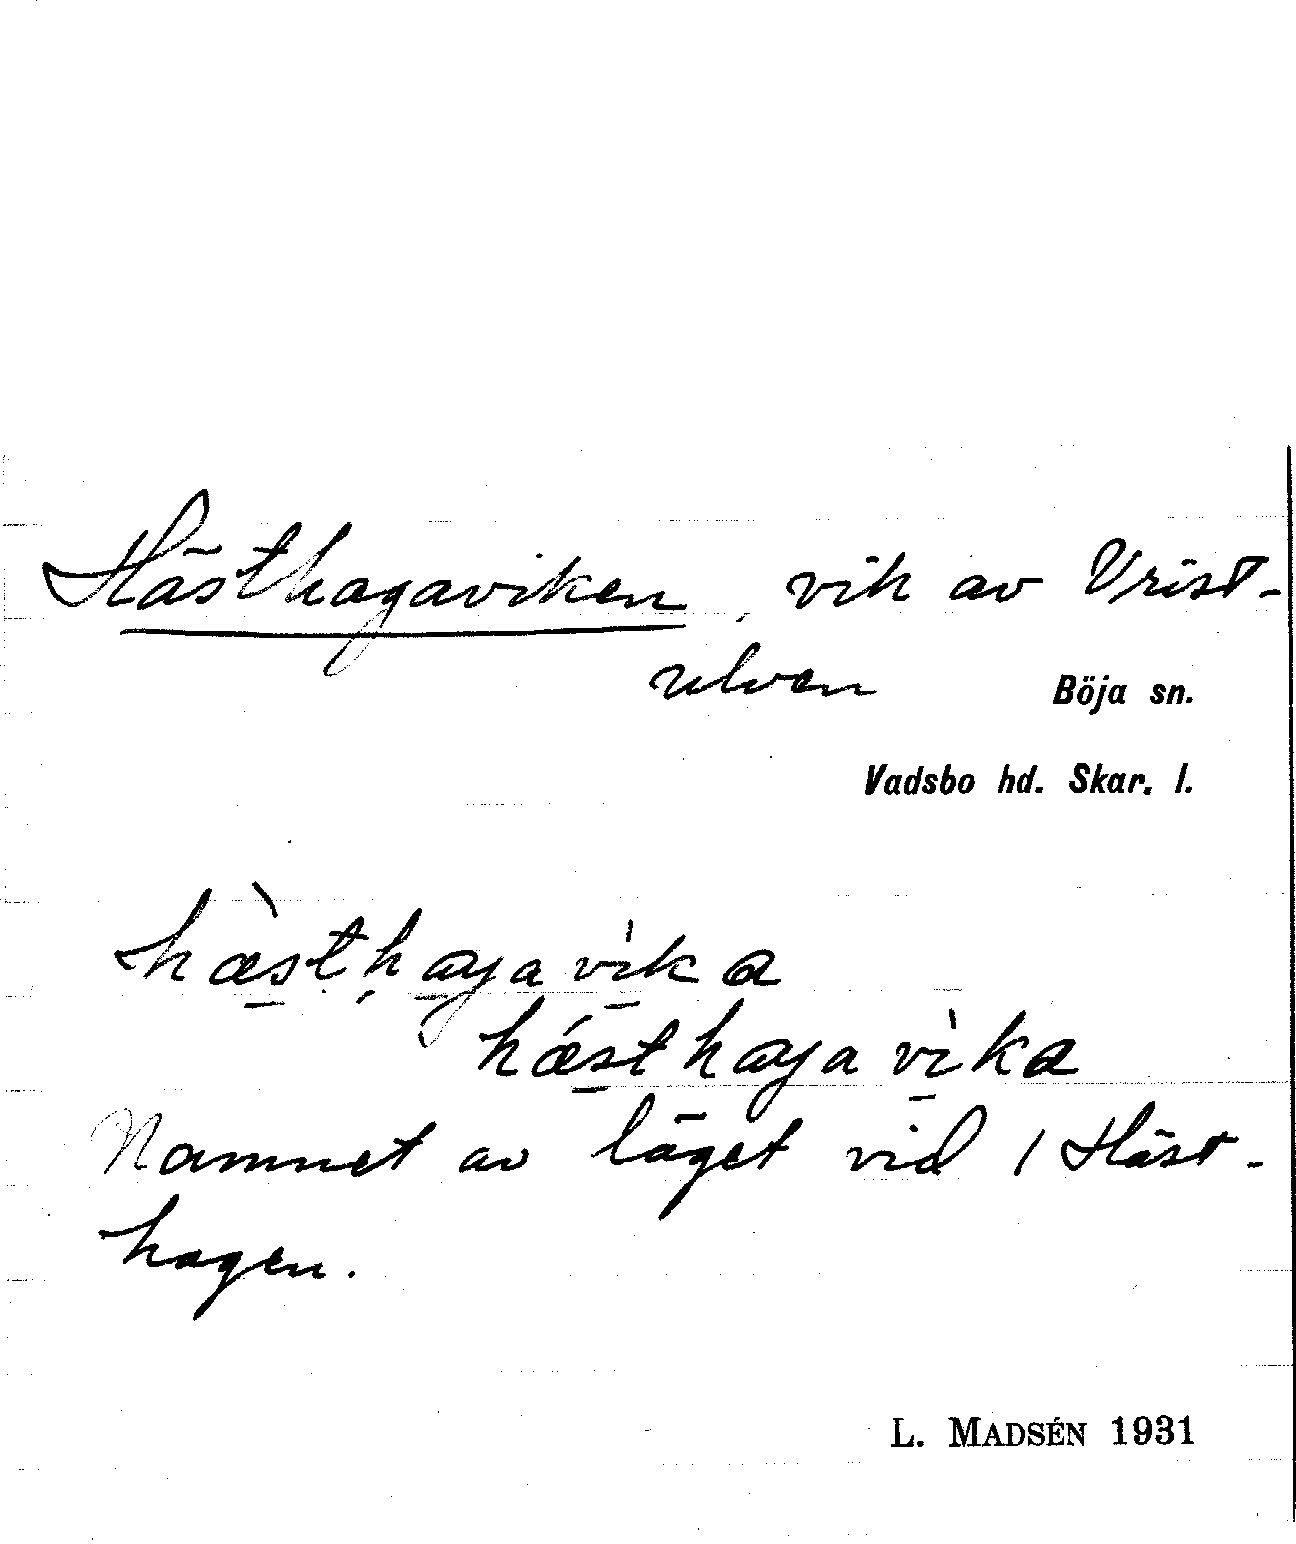 Hästhagaviken, vik av Vrist-
ulven
Böja sn.
Vadsbo hd. Skar. l.
hæ̀sthagavika
hǽsthagavìka
Namnet av läget vid 1 Häst-
hagen.
L. MADSÉN 1931